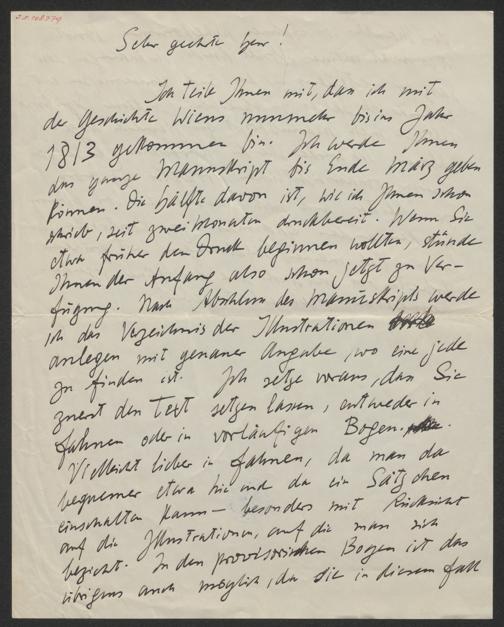 Sehr geehrter Herr!
Ich teile Ihnen mit, dass ich mit
der Geschichte Wiens nunmehr bis ins Jahr
1813 gekommen bin. Ich werde Ihnen
das ganze Manuskript bis Ende März geben
können. Die Hälfte davon ist, wie ich Ihnen schon
schrieb, seit zwei Monaten druckbereit. Wenn Sie
etwa früher den Druck beginnen wollten, stünde
Ihnen der Anfang also schon jetzt zur Ver-
fügung. Nach Abschluss des Manuskripts werde
ich das Verzeichnis der Illustrationen
anlegen mit genauer Angabe, wo eine jede
zu finden ist. Ich setze voraus, dass Sie
zuerst den Text setzen lassen, entweder in
Fahnen oder in vorläufigen Bogen.
Vielleicht lieber in Fahnen, da man da
bequemer etwa hie und da ein Sätzchen
einschalten kann – besonders mit Rücksicht
auf die Illustrationen, auf die man sich
bezieht. In den provisorischen Bogen ist das
übrigens auch möglich, da sie in diesem Fall